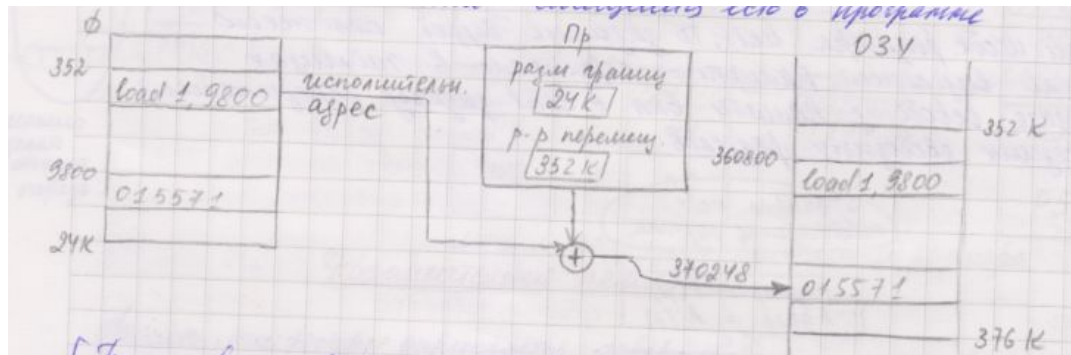 есть в программе
ф
352
load 1, 9800
9800
015571
24К
исполнительн.
адрес
Пр
разм границ
24К
р-р перемещ
352К
370248
ОЗУ
352 К
360800
load 1, 9800
015571
376 К